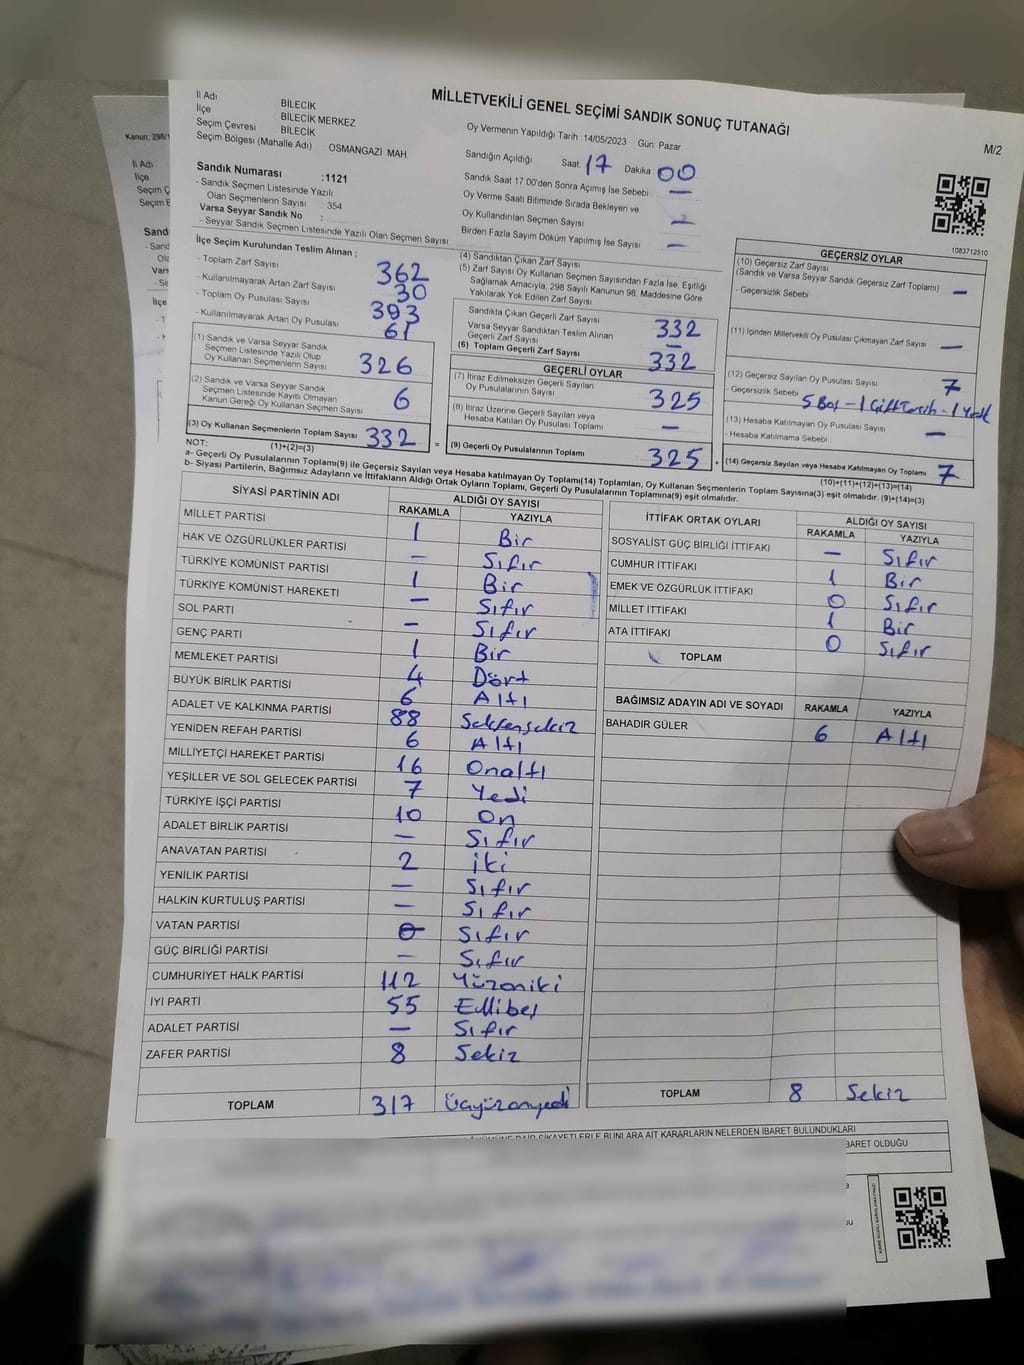 MİLLETVEKİLİ GENEL SEÇİMİ SANDIK SONUÇ TUTANAĞI
M/2
İl Adı BİLECİK
İlçe BİLECİK MERKEZ
Seçim Çevresi BİLECİK
Seçim Bölgesi (Mahalle Adı) OSMANGAZİ MAH
Sandık Numarası :1121
- Sandık Seçmen Listesinde Yazılı
Olan Seçmenlerin Sayısı : 354
Varsa Seyyar Sandık No :
- Seyyar Sandık Seçmen Listesinde Yazılı Olan Seçmen Sayısı
Oy Vermenin Yapıldığı Tarih :14/05/2023 Gün: Pazar
Sandığın Açıldığı Saat 17 Dakika 00
Sandık Saat 17.00'den Sonra Açımış İse Sebebi —
Oy Verme Saati Bitiminde Sırada Bekleyen ve
Oy Kullandırılan Seçmen Sayısı —
Birden Fazla Sayım Döküm Yapılmış İse Sayısı —
1083712510
İlçe Seçim Kurulundan Teslim Alınan ;
- Toplam Zarf Sayısı 362
- Kullanılmayarak Artan Zarf Sayısı 30
- Toplam Oy Pusulası Sayısı 393
- Kullanılmayarak Artan Oy Pusulası 61
(1) Sandık ve Varsa Seyyar Sandık
Seçmen Listesinde Yazılı Olup
Oy Kullanan Seçmenlerin Sayısı 326
(2) Sandık ve Varsa Seyyar Sandık
Seçmen Listesinde Kayıtlı Olmayan
Kanun Gereği Oy Kullanan Seçmen Sayısı 6
(3) Oy Kullanan Seçmenlerin Toplam Sayısı 332 =
(1)+(2)=(3)
(4) Sandıktan Çıkan Zarf Sayısı
(5) Zarf Sayısı Oy Kullanan Seçmen Sayısından Fazla İse, Eşitliği
Sağlamak Amacıyla, 298 Sayılı Kanunun 98. Maddesine Göre
Yakılarak Yok Edilen Zarf Sayısı
Sandıkta Çıkan Geçerli Zarf Sayısı 332
Varsa Seyyar Sandıktan Teslim Alınan
Geçerli Zarf Sayısı —
(6) Toplam Geçerli Zarf Sayısı 332
GEÇERLİ OYLAR
(7) İtiraz Edilmeksizin Geçerli Sayılan
Oy Pusulalarının Sayısı 325
(8) İtiraz Üzerine Geçerli Sayılan veya
Hesaba Katılan Oy Pusulası Toplamı —
(9) Geçerli Oy Pusulalarının Toplamı 325 +
GEÇERSİZ OYLAR
(10) Geçersiz Zarf Sayısı
(Sandık ve Varsa Seyyar Sandık Geçersiz Zarf Toplamı) —
- Geçersizlik Sebebi
(11) İçinden Milletvekili Oy Pusulası Çıkmayan Zarf Sayısı —
(12) Geçersiz Sayılan Oy Pusulası Sayısı 7
- Geçersizlik Sebebi 5 Boş - 1 Çift Tercih - 1
(13) Hesaba Katılmayan Oy Pusulası Sayısı —
- Hesaba Katılmama Sebebi
(14) Geçersiz Sayılan veya Hesaba Katılmayan Oy Toplamı 7
(10)+(11)+(12)+(13)=(14)
NOT:
a- Geçerli Oy Pusulalarının Toplamı(9) ile Geçersiz Sayılan veya Hesaba katılmayan Oy Toplamı(14) Toplamları, Oy Kullanan Seçmenlerin Toplam Sayısına(3) eşit olmalıdır. (9)+(14)=(3)
b- Siyasi Partilerin, Bağımsız Adayların ve İttifakların Aldığı Ortak Oyların Toplamı, Geçerli Oy Pusulalarının Toplamına(9) eşit olmalıdır.
SİYASİ PARTİNİN ADI ALDIĞI OY SAYISI
RAKAMLA YAZIYLA
MİLLET PARTİSİ 1 Bir
HAK VE ÖZGÜRLÜKLER PARTİSİ — Sıfır
TÜRKİYE KOMÜNİST PARTİSİ 1 Bir
TÜRKİYE KOMÜNİST HAREKETİ — Sıfır
SOL PARTİ — Sıfır
GENÇ PARTİ 1 Bir
MEMLEKET PARTİSİ 4 Dört
BÜYÜK BİRLİK PARTİSİ 6 Altı
ADALET VE KALKINMA PARTİSİ 88 Seksensekiz
YENİDEN REFAH PARTİSİ 6 Altı
MİLLİYETÇİ HAREKET PARTİSİ 16 Onaltı
YEŞİLLER VE SOL GELECEK PARTİSİ 7 Yedi
TÜRKİYE İŞÇİ PARTİSİ 10 On
ADALET BİRLİK PARTİSİ — Sıfır
ANAVATAN PARTİSİ 2 iki
YENİLİK PARTİSİ — Sıfır
HALKIN KURTULUŞ PARTİSİ — Sıfır
VATAN PARTİSİ 0 Sıfır
GÜÇ BİRLİĞİ PARTİSİ — Sıfır
CUMHURİYET HALK PARTİSİ 112 Yüzoniki
İYİ PARTİ 55 Ellibeş
ADALET PARTİSİ — Sıfır
ZAFER PARTİSİ 8 Sekiz
TOPLAM 317 Üçyüzonyedi
İTTİFAK ORTAK OYLARI ALDIĞI OY SAYISI
RAKAMLA YAZIYLA
SOSYALİST GÜÇ BİRLİĞİ İTTİFAKI — Sıfır
CUMHUR İTTİFAKI 1 Bir
EMEK VE ÖZGÜRLÜK İTTİFAKI 0 Sıfır
MİLLET İTTİFAKI 1 Bir
ATA İTTİFAKI 0 Sıfır
TOPLAM
BAĞIMSIZ ADAYIN ADI VE SOYADI RAKAMLA YAZIYLA
BAHADIR GÜLER 6 Altı
TOPLAM 8 Sekiz
ŞİKAYETLERLE BUNLARA AİT KARARLARIN NELERDEN İBARET BULUNDUKLARI
İBARET OLDUĞU
Kanun; 298/1
İl Adı
İlçe
Seçim Ç
Seçim B